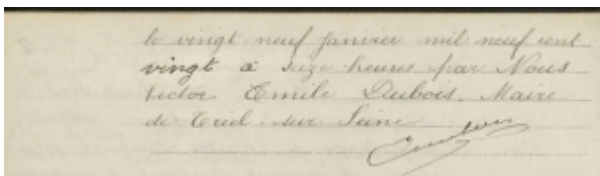 le vingt neuf janvier mil neuf cent
vingt à seize heures par Nous
Victor Emile Dubois, Maire
de Triel-sur-Seine